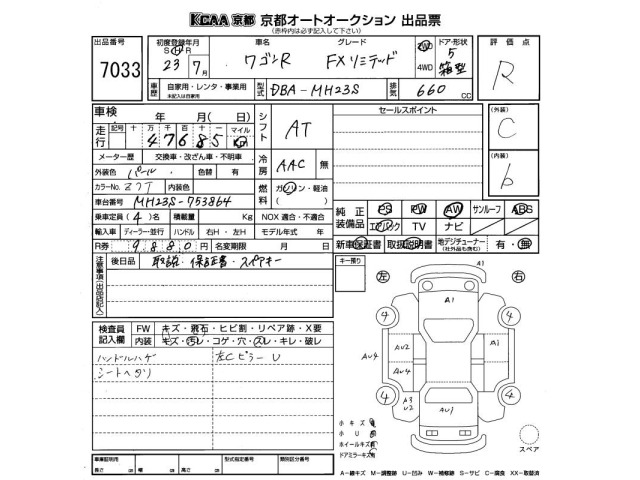 KCAA 京都 京都オートオークション 出品票
(赤枠内は必ず記入して下さい)
出品番号
7033
初度登録年月
S H
23年 7月
車名
ワゴンR
グレード
FXリミテッド
2WD
4WD
ドア・形状
5
箱型
評価点
R
車歴
自家用・レンタ・事業用
未記入は自家用
型式
DBA-MH23S
排気
660
CC
車検 年 月( 日)
シフト
AT
セールスポイント
(外装)
C
走行
記号 十 万 千 百 十 一 マイル
4 7 6 8 5 Km
メーター歴 交換車・改ざん車・不明車
冷房
AAC 無
(内装)
b
外装色 パール 色替 有
カラーNo. Z7T 内装色
燃料
ガソリン・軽油
( )
車台番号 MH23S-753864
乗車定員 (4)名 積載量 Kg
NOX 適合・不適合
純正装備品
PS PW AW サンルーフ ABS
エアバック TV ナビ
輸入車 ディーラー・並行 ハンドル 右H・左H
モデル年式 年
R券 9880円 名変期限 月 日
新車保証書 取扱説明書 地デジチューナー
(社外品も含む)
有・無
注意事項(出品店記入)
後日品 取説・保証書・スペアキー
キー預り
左
右
A1
A1
4
4
AU2
A1
AU4
AU4
A3
U2
AU1
4
4
検査員記入欄
FW キズ・飛石・ヒビ割・リペア跡・X要
内装 キズ・汚レ・コゲ・穴・スレ・キレ・破レ
ハンドルハゲ
左Cピラー U
シートヘタリ
小キズ
小U
ホイールキズ
ドアミラーキズ
スペア
車庫証明用
長さ 幅 高さ
型式指定番号
類別区分番号
A－線キズ M－調整跡 U－凹み W－補修跡 S－サビ C－腐食 XX－取替済